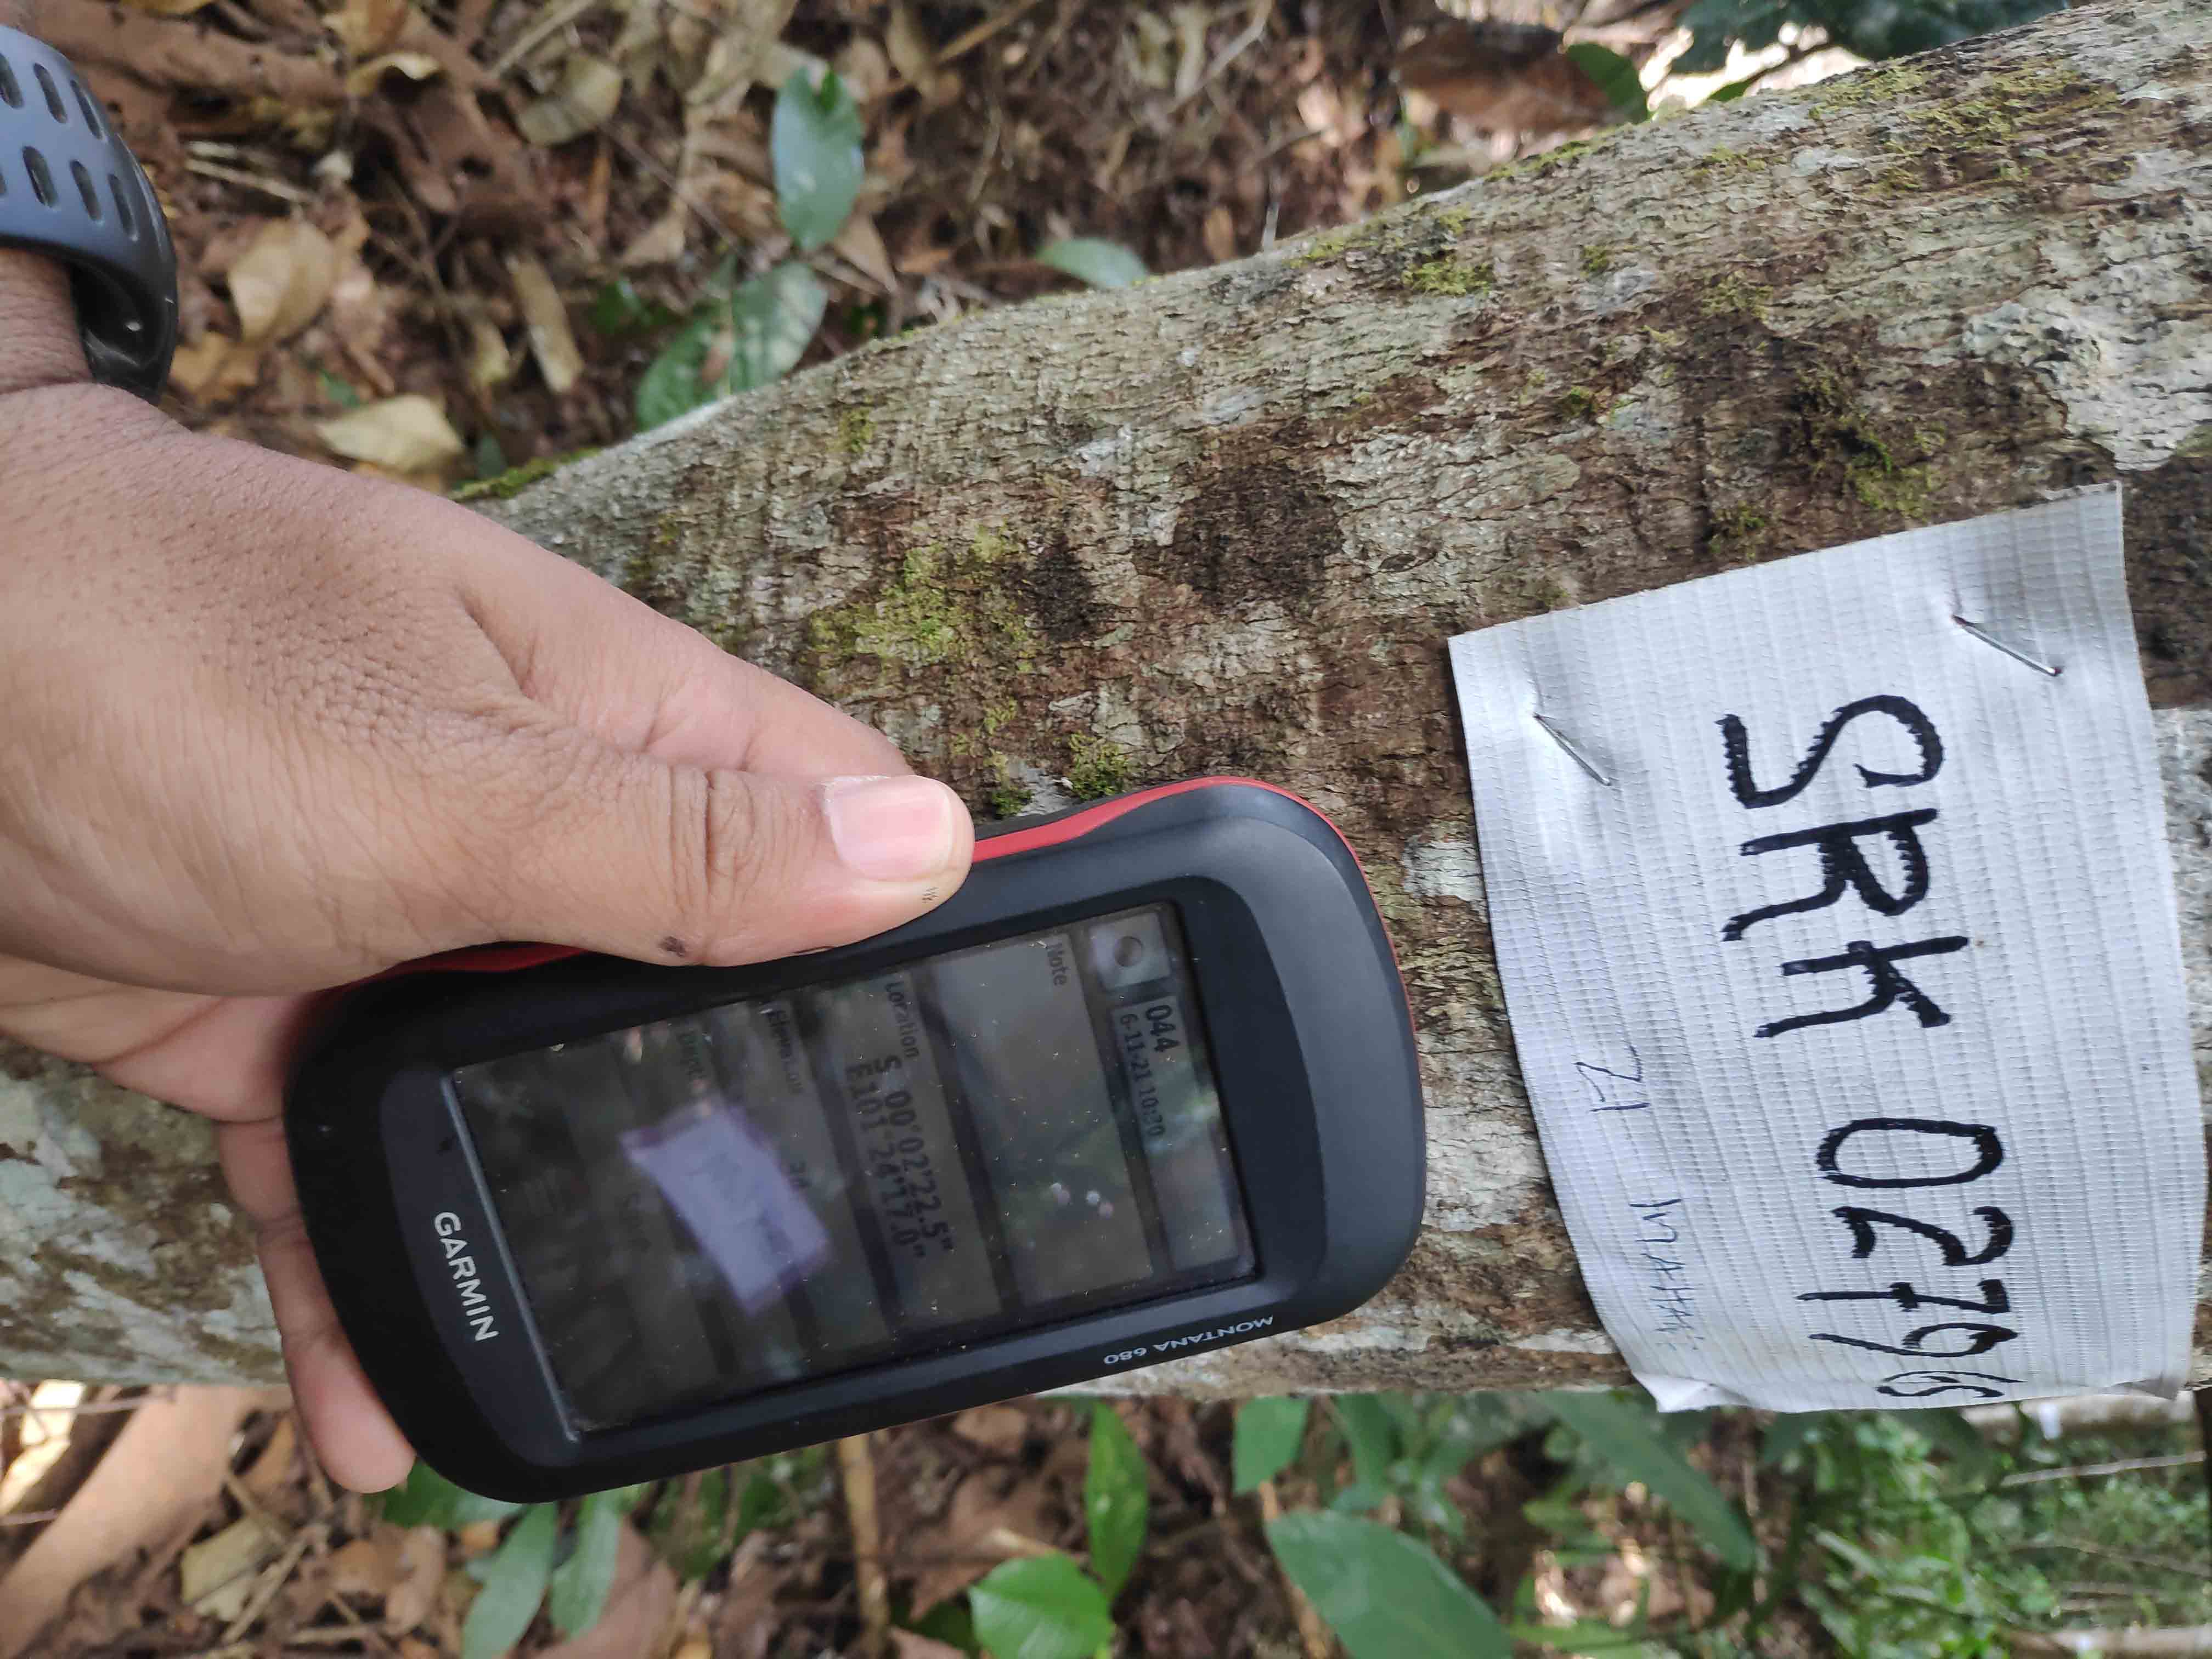 SRK 0279
21
MONTANA 680
044
6-11-21 10:30
Note
Location
S 00°02'22.5"
E101°24'17.0"
Elevation
Depth
GARMIN